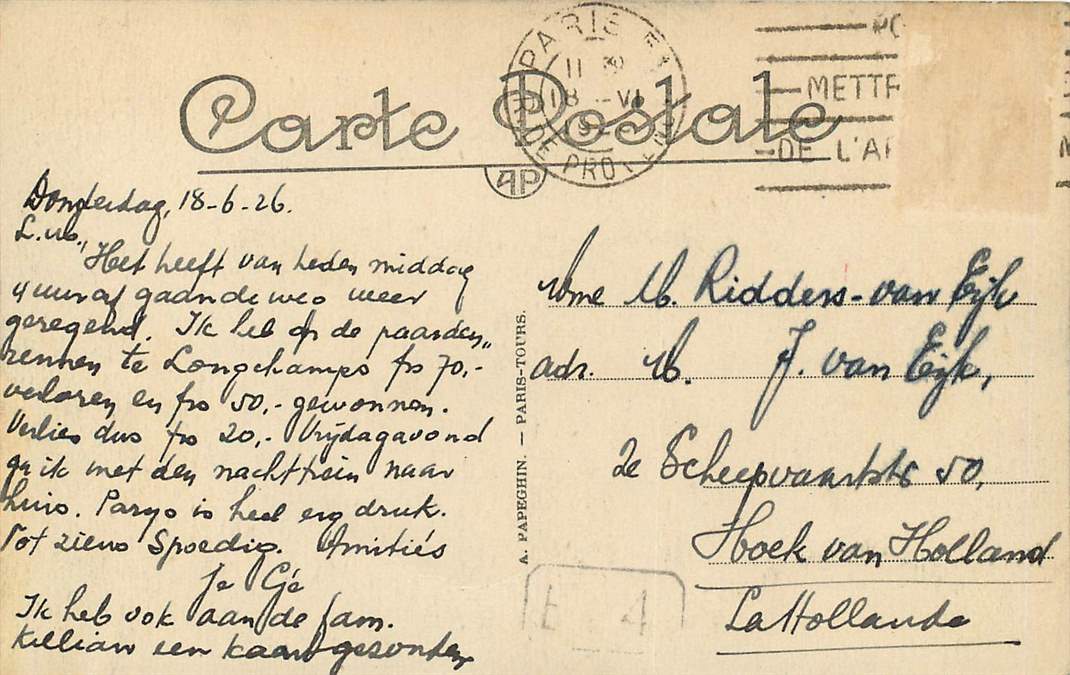 Carte Postale
PARIS
11
18 - VI
DE PROV
METTR
DE L'A
AP
Donderdag, 18-6-26.
L.M.,
Het heeft van heden middag
4 uur af gaandeweg weer
geregend. Ik heb op de paarden„
rennen te Longchamps frs 70,-
verloren en frs 50,- gewonnen.
Verlies dus frs 20,- Vrijdagavond
ga ik met den nachttrein naar
huis. Parys is heel erg druk.
Tot ziens Spoedig. Amitiés
Je Gé
Ik heb ook aan de fam.
Killian een kaart gezonden
A. PAPEGHIN. — PARIS-TOURS.
Mme M. Ridders-van Eijk
adr. M. J. van Eijk,
2e Scheepvaartstr 50,
Hoek van Holland
La Hollande
E 4